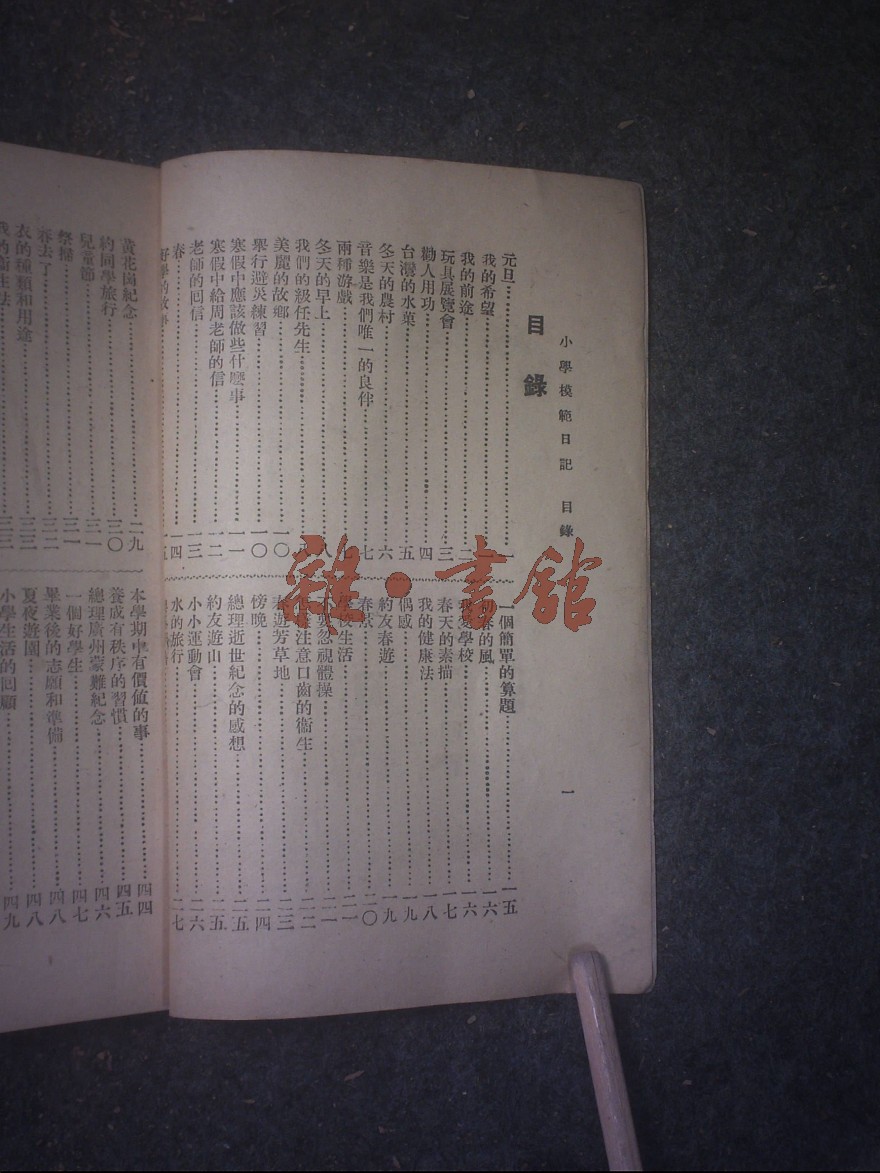 小學模範日記　目錄
一
目錄
元旦……一
我的希望
我的前途……二
玩具展覽會……三
勸人用功……四
台灣的水菓……五
冬天的農村……六
音樂是我們唯一的良伴……七
兩種游戲……七
冬天的早上……八
我們的級任先生……八
美麗的故鄉……一〇
舉行避災練習……一〇
寒假中應該做些什麼事……一一
寒假中給周老師的信……一二
老師的回信……一三
春……一四
好學的故事……一五
一個簡單的算題……一五
初春的風……一六
我愛學校……一六
春天的素描……一七
我的健康法……一八
偶感……一九
約友春遊……一九
春歌……二〇
學校生活……二一
不要忽視體操……二二
注意口齒的衞生……二二
春遊芳草地……二三
傍晚……二四
總理逝世紀念的感想……二五
約友遊山……二五
小小運動會……二六
水的旅行……二七
黃花崗紀念……二九
約同學旅行……三〇
兒童節……三一
祭掃……三一
春去了……三二
衣的種類和用途……三三
我的衞生法……三三
本學期中有價值的事……四四
養成有秩序的習慣……四五
總理廣州蒙難紀念……四六
一個好學生……四七
畢業後的志願和準備……四八
夏夜遊園……四八
小學生活的回顧……四九
雜·書館